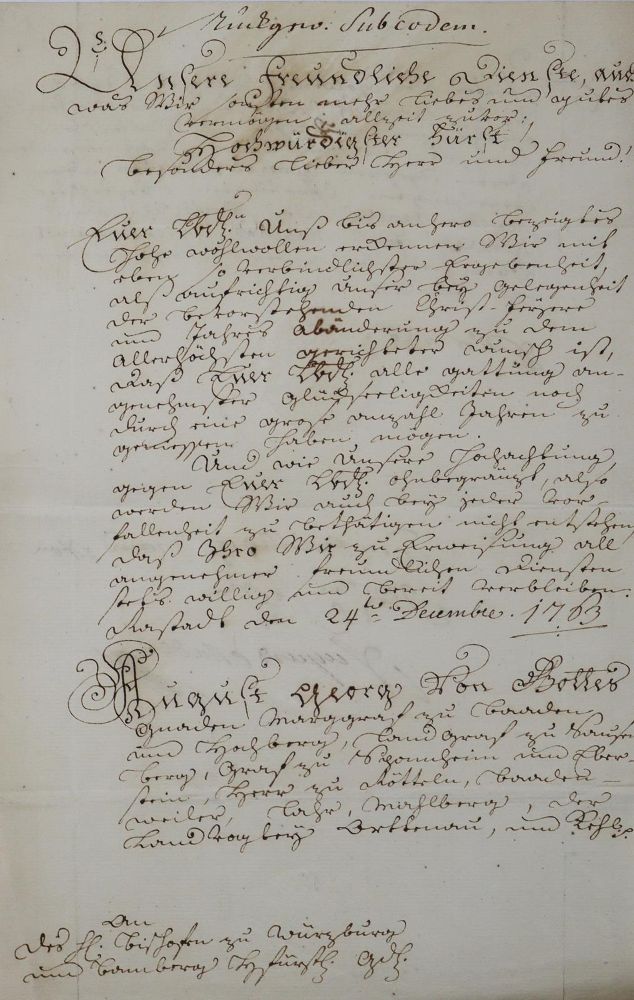 Sub eodem.
Unsere Freundliche Dienste, auch
was Wir sonsten mehr liebes und gutes
vermögen, allzeit zuvor;
Hochwürdigster Fürst,
besonders lieber Herr und Freund!
Euer Lbd.n Unß bis anhero bezeigtes
hohe wohlwollen erkennen Wir mit
eben so verbindlichster Ergebenheit,
alß aufrichtig unser bey gelegenheit
der bevorstehenden Christ-feyere
und Jahres Abänderung zu dem
Allerhöchsten gerichteter wunsch ist,
daß Euer Lbd. alle gattung an-
genehmster Glückseeligkeiten noch
durch eine grose anzahl Jahren zu
geniessen haben mögen.
Und wie unsere Hochachtung
gegen Euer Lbd. ohnbegränzt, also
werden Wir auch bey jeder vor-
fallenheit zu bethätigen nicht entstehen,
daß Ihro Wir zu Erweisung all
angenehmer freundlichen diensten
stets willig und bereit verbleiben.
Rastadt den 24ten Decembre. 1763
August Georg Von Gottes
Gnaden Marggraf zu baaden
und Hochberg, Landgraf zu Sausen-
berg, Graf zu Sponheim und Eber-
stein, Herr zu Rötteln, baaden-
weiler, Lahr, Mahlberg, der
Landvogtey Orttenau, und Kehl p.
An
des H. bischofen zu würzburg
und bamberg Hfürstl. Gd.